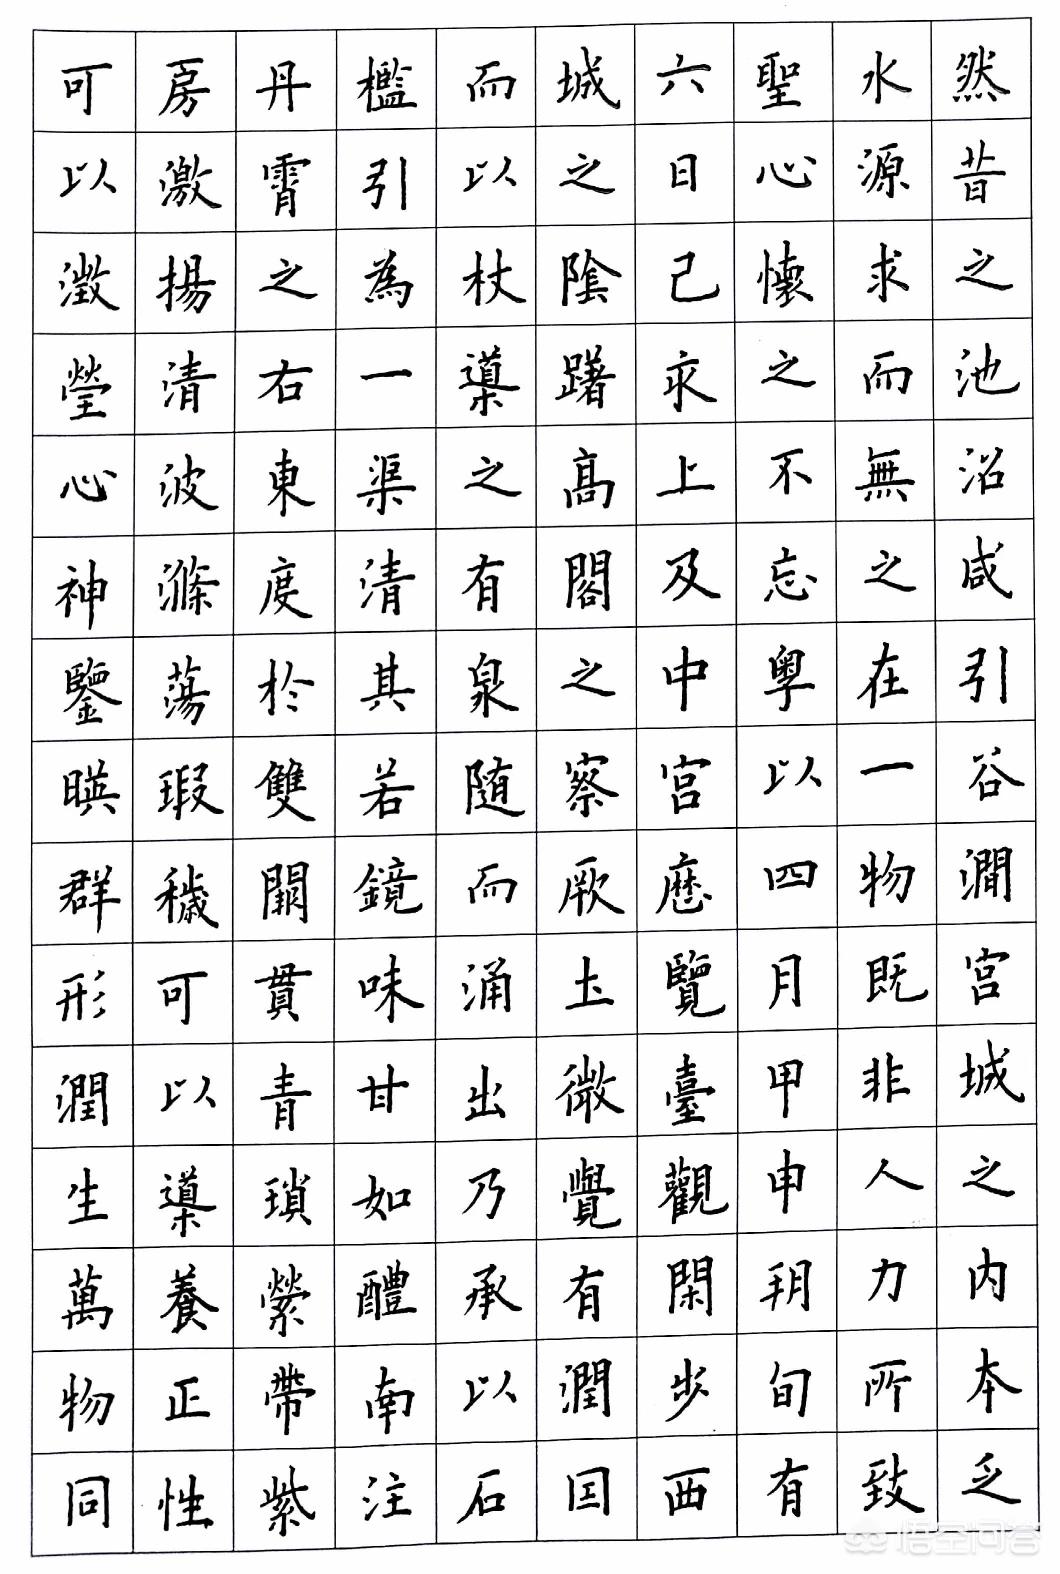 然昔之池沼咸引谷澗宫城之内本乏
水源求而無之在一物既非人力所致
聖心懷之不忘粤以四月甲申朔旬有
六日己亥上及中宫歷覽臺觀閑步西
城之陰躇高閣之察厥土微覺有潤因
而以杖導之有泉随而涌出乃承以石
檻引為一渠清其若鏡味甘如醴南注
丹霄之右東度於雙闕貫青瑣縈帶紫
房激揚清波滌蕩瑕穢可以導養正性
可以澂瑩心神鑒暎群形潤生萬物同
悟空问答